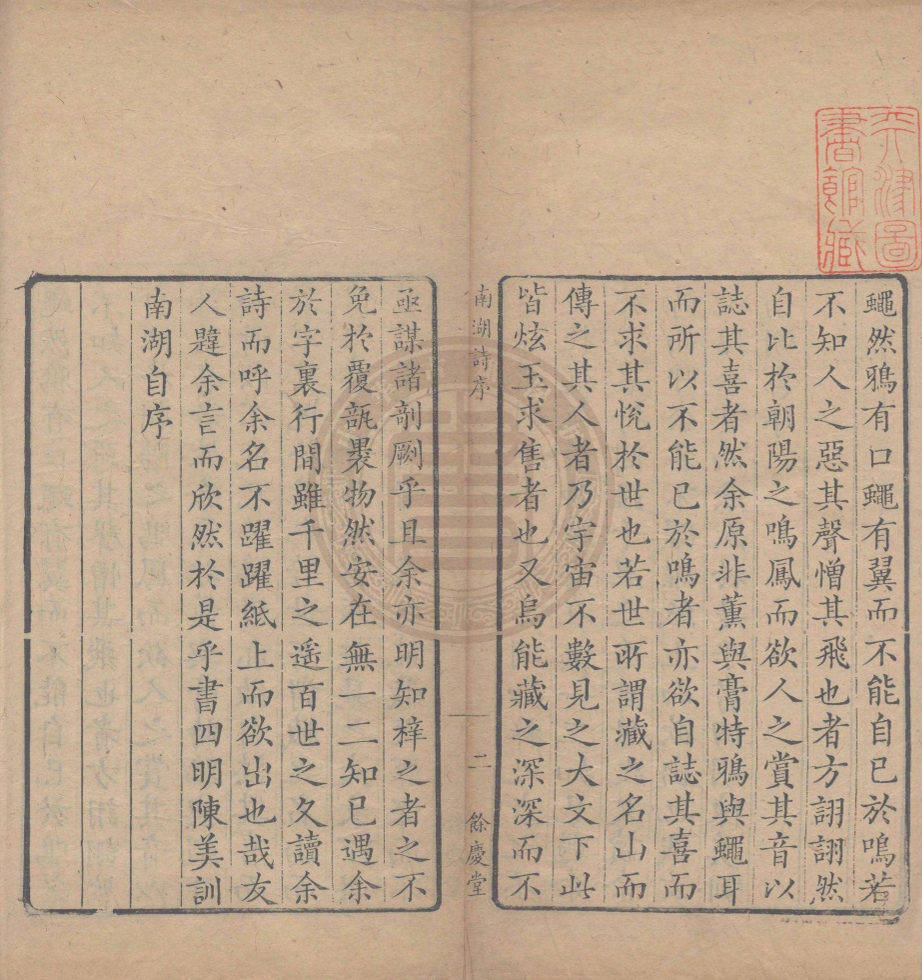 蠅然鴉有口蠅有翼而不能自已於鳴若
不知人之惡其聲憎其飛也者方詡詡然
自比於朝陽之鳴鳳而欲人之賞其音以
誌其喜者然余原非薰與膏特鴉與蠅耳
而所以不能已於鳴者亦欲自誌其喜而
不求其悅於世也若世所謂藏之名山而
傳之其人者乃宇宙不數見之大文下此
皆炫玉求售者也又烏能藏之深深而不
南湖詩序
二
餘慶堂
亟謀諸剞劂乎且余亦明知梓之者之不
免於覆瓿褁物然安在無一二知已遇余
於字裏行間雖千里之遥百世之久讀余
詩而呼余名不躍躍紙上而欲出也哉友
人韙余言而欣然於是乎書四明陳美訓
南湖自序
天津圖
書館藏